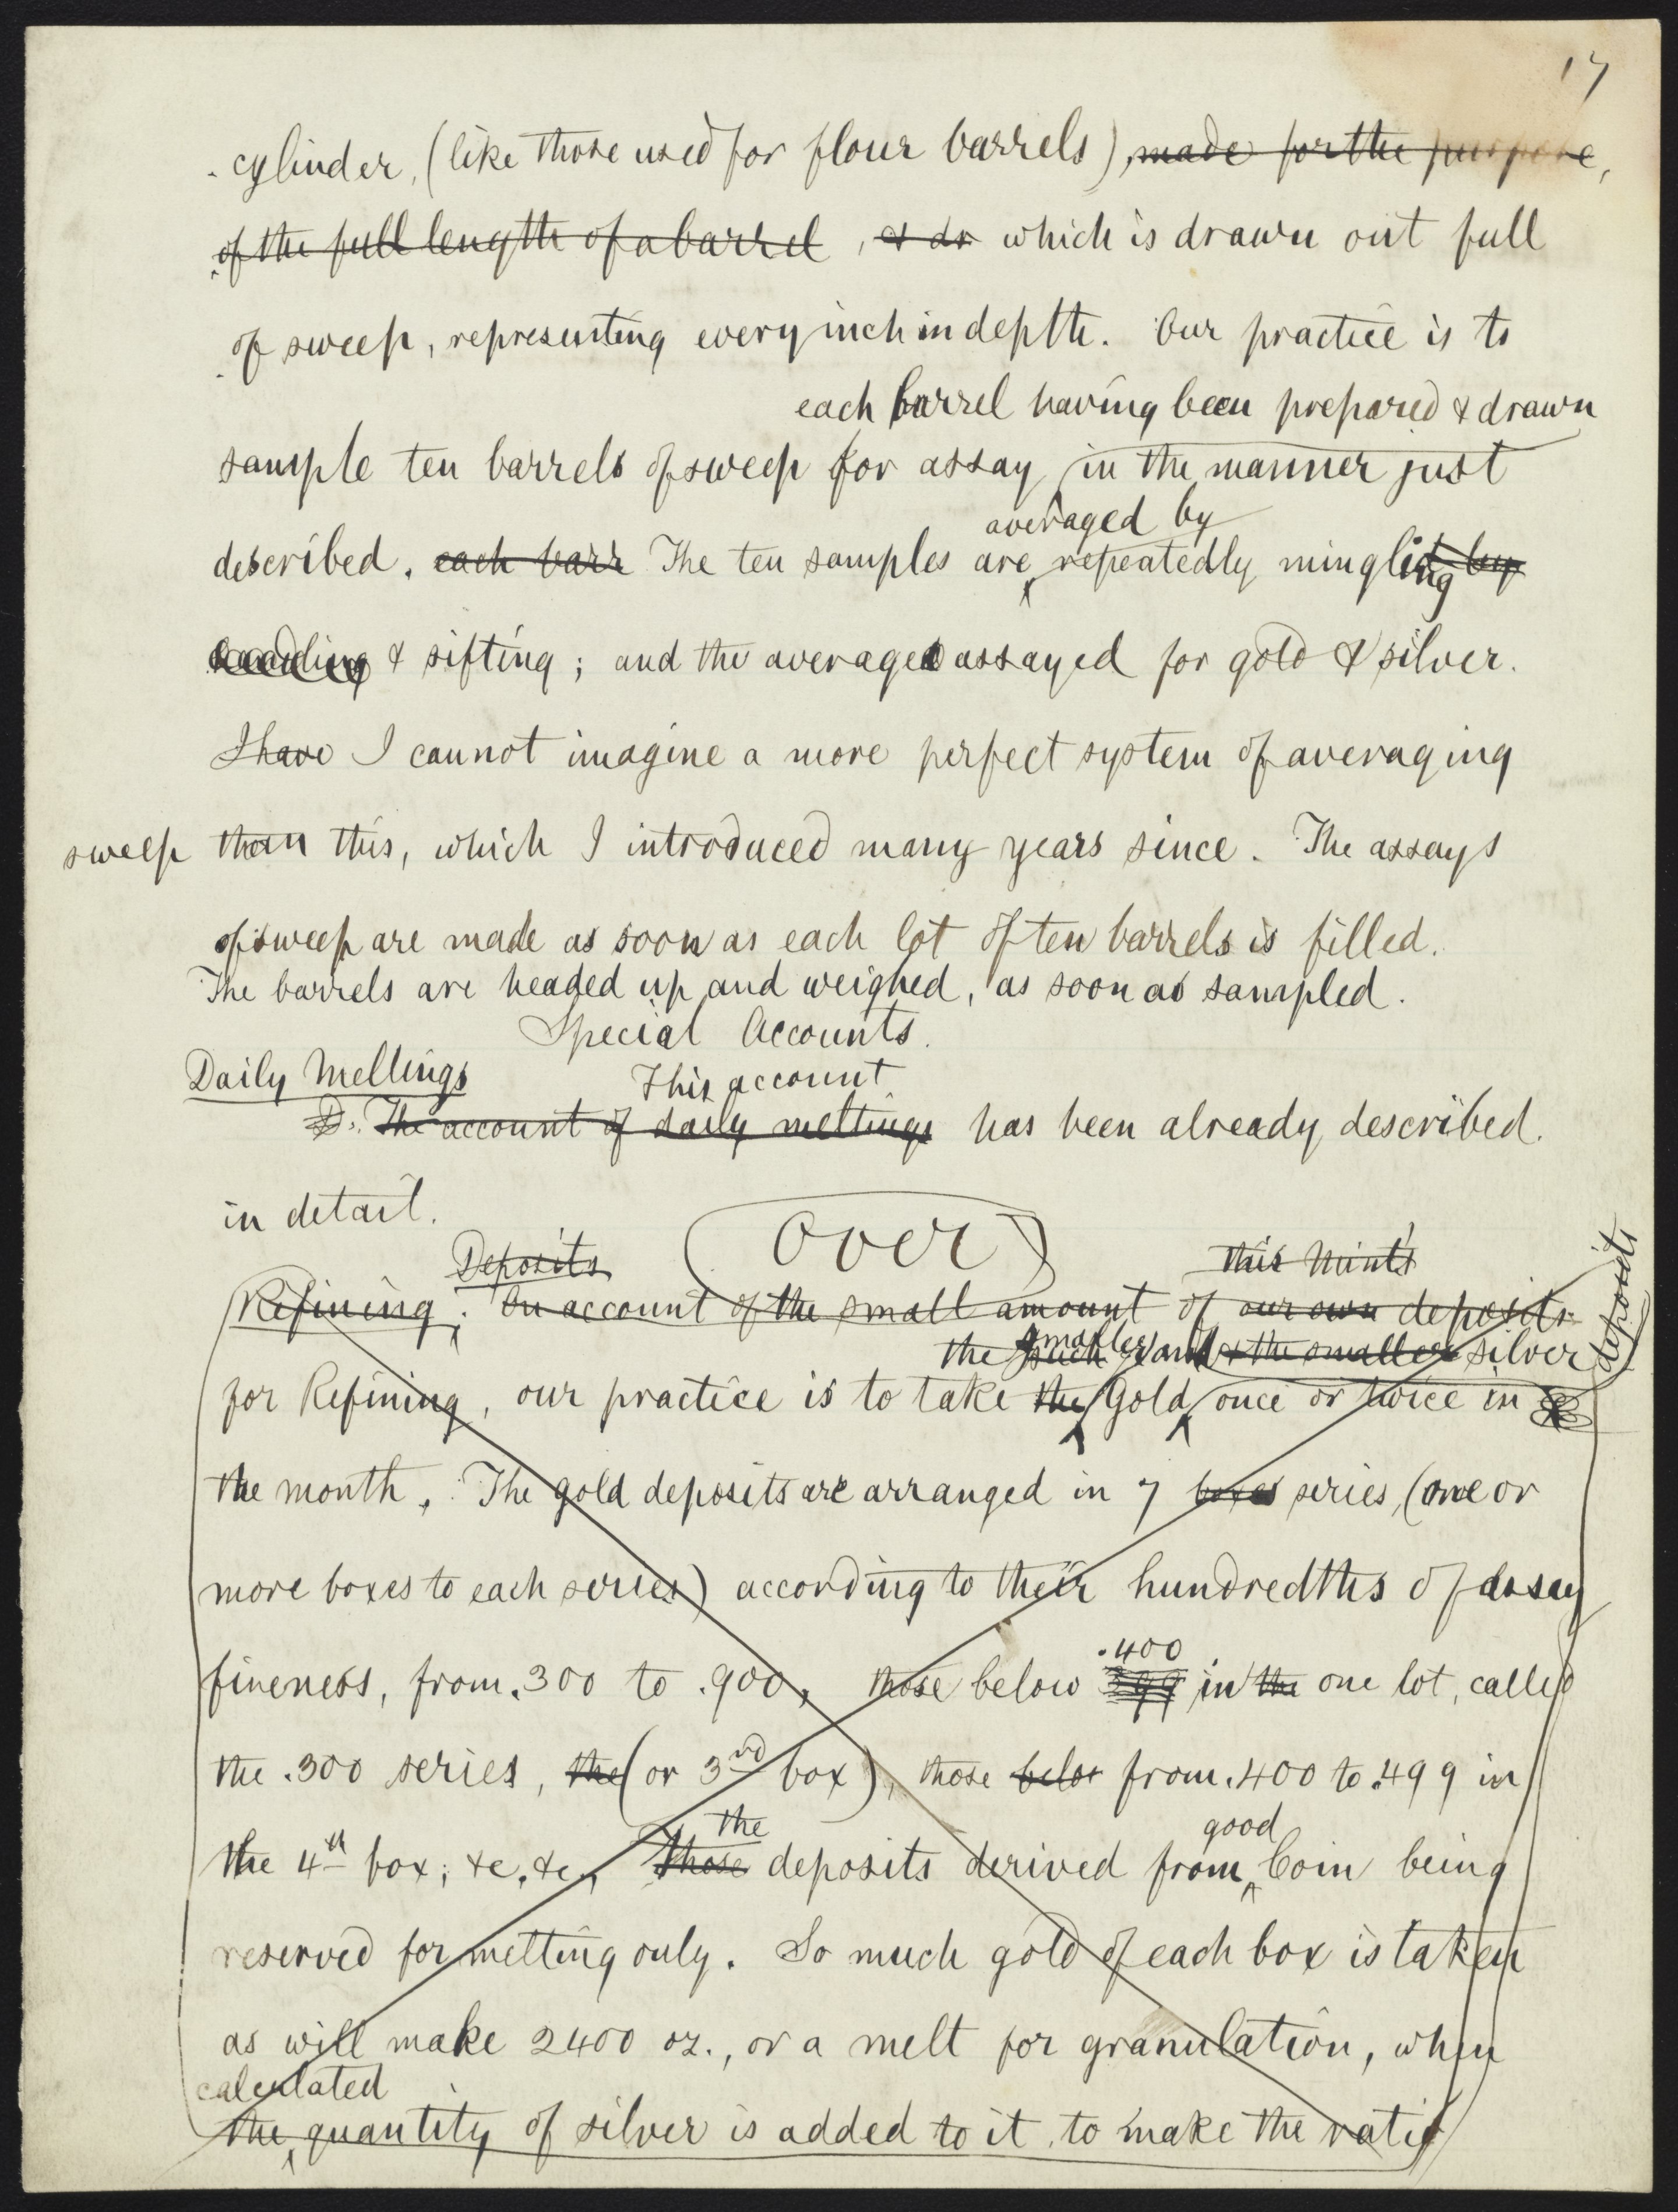 17
cylinder, (like those used for flour barrels), made for the purpose,
of the full length of a barrel, & dr which is drawn out full
of sweep, representing every inch in depth. Our practice is to
each barrel having been prepared & drawn
sample ten barrels of sweep for assay in the manner just
averaged by
described. each barr The ten samples are repeatedly mingling by
& sifting; and the average assayed for gold & silver.
I have I cannot imagine a more perfect system of averaging
sweep than this, which I introduced many years since. The assays
of sweep are made as soon as each lot of ten barrels is filled.
The barrels are headed up and weighed, as soon as sampled.
Special Accounts.
Daily Meltings
This account
D. The account of daily meltings has been already described.
in detail.
Over
Deposits
this Mint's
Refining. On account of the small amount of our own deposits
the smaller and & the smaller silver deposits
for Refining, our practice is to take the Gold once or twice in
the month. The gold deposits are arranged in 7 boxes series, (one or
more boxes to each series) according to their hundredths of assay
fineness, from .300 to .900, those below 399 .400 in the one lot, called
the .300 series, the (or 3rd box), those below from .400 to .499 in
the good
the 4th box; &c, &c., Those deposits derived from Coin being
reserved for melting only. So much gold of each box is taken
as will make 2400 oz., or a melt for granulation, when
calculated
the quantity of silver is added to it, to make the ratio